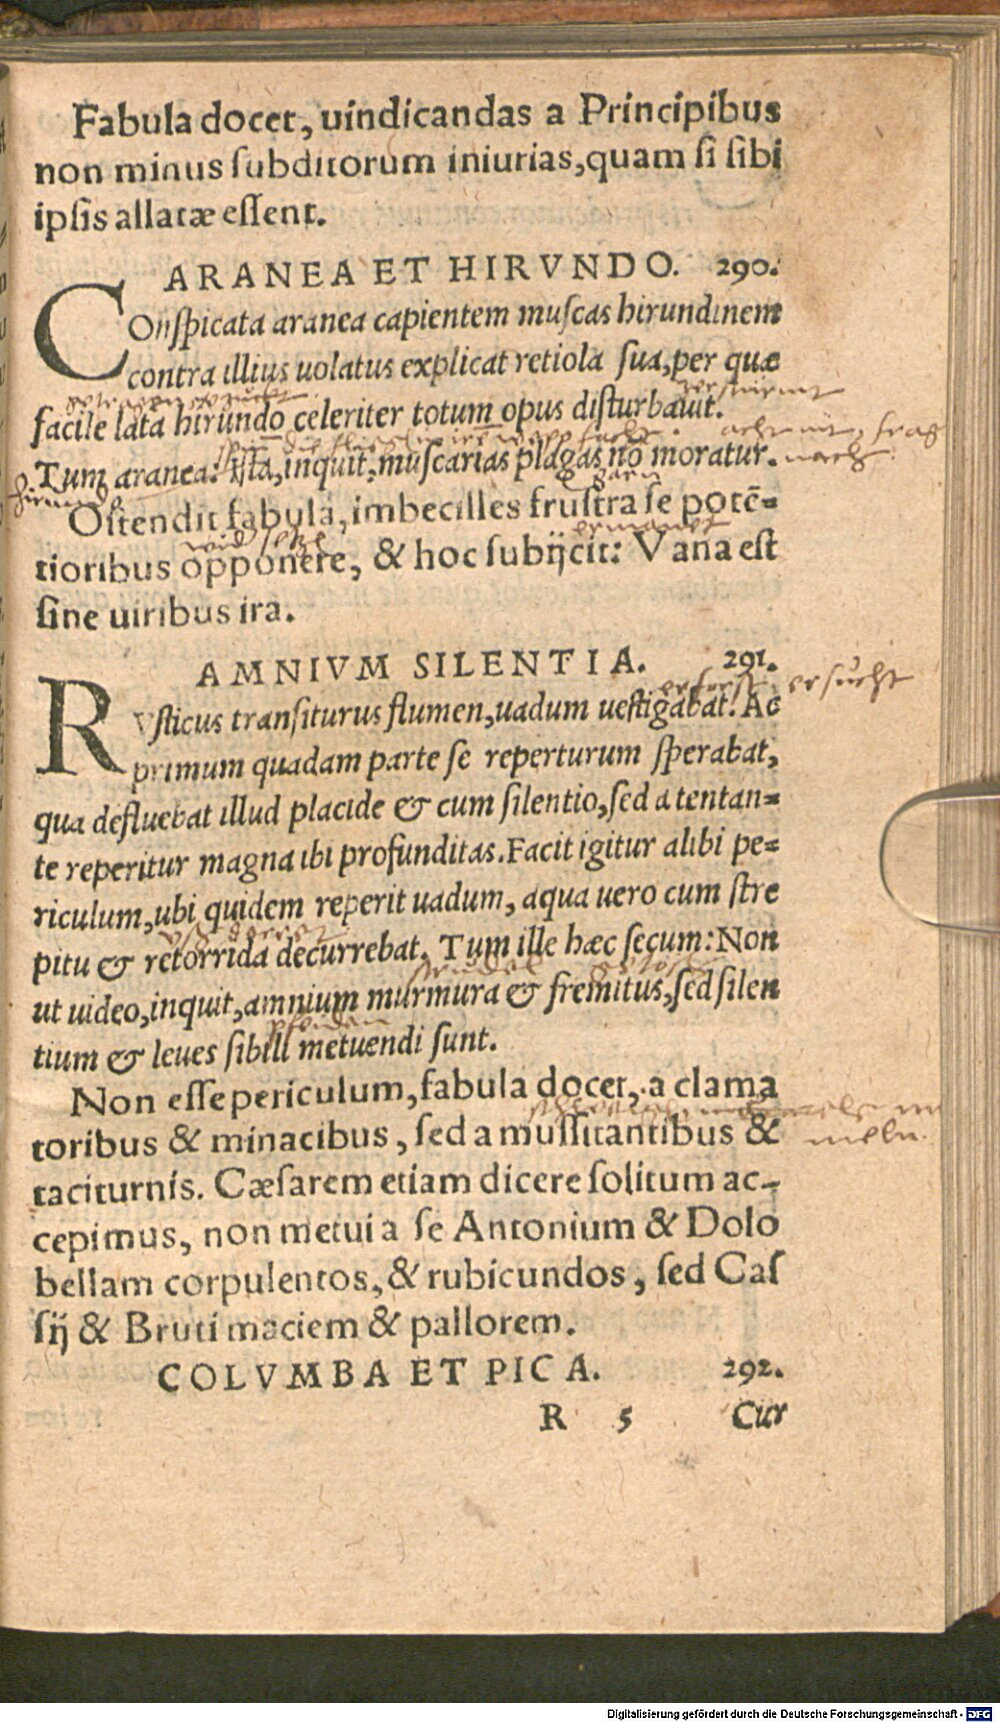 Fabula docet, uindicandas a Principibus
non minus ſubditorum iniurias, quam ſi ſibi
ipſis allatæ eſſent.
ARANEA ET HIRVNDO. 290.
COnſpicata aranea capientem muſcas hirundinem
contra illius uolatus explicat retiola ſua, per quæ
facile lata hirundo celeriter totum opus diſturbauit.
Tum aranea: Iſta, inquit, muſcarias plagas nō moratur.
nach
Oſtendit fabula, imbecilles fruſtra ſe potē=
tioribus opponere, & hoc ſubijcit: Vana eſt
ſine uiribus ira.
AMNIVM SILENTIA. 291.
erforſt erſucht
RVſticus tranſiturus flumen, uadum ueſtigabat. Ac
primum quadam parte ſe reperturum ſperabat,
qua defluebat illud placide & cum ſilentio, ſed a tentan=
te reperitur magna ibi profunditas. Facit igitur alibi pe=
riculum, ubi quidem reperit uadum, aqua uero cum ſtre
pitu & retorrida decurrebat. Tum ille hæc ſecum: Non
ut uideo, inquit, amnium murmura & fremitus, ſed ſilen
tium & leues ſibili metuendi ſunt.
Non eſſe periculum, fabula docet, a clama
toribus & minacibus, ſed a muſſitantibus &
taciturnis. Cæſarem etiam dicere ſolitum ac-
cepimus, non metui a ſe Antonium & Dolo
bellam corpulentos, & rubicundos, ſed Caſ
ſij & Bruti maciem & pallorem.
COLVMBA ET PICA. 292.
R 5 Cur
Digitalisierung gefördert durch die Deutsche Forschungsgemeinschaft - DFG